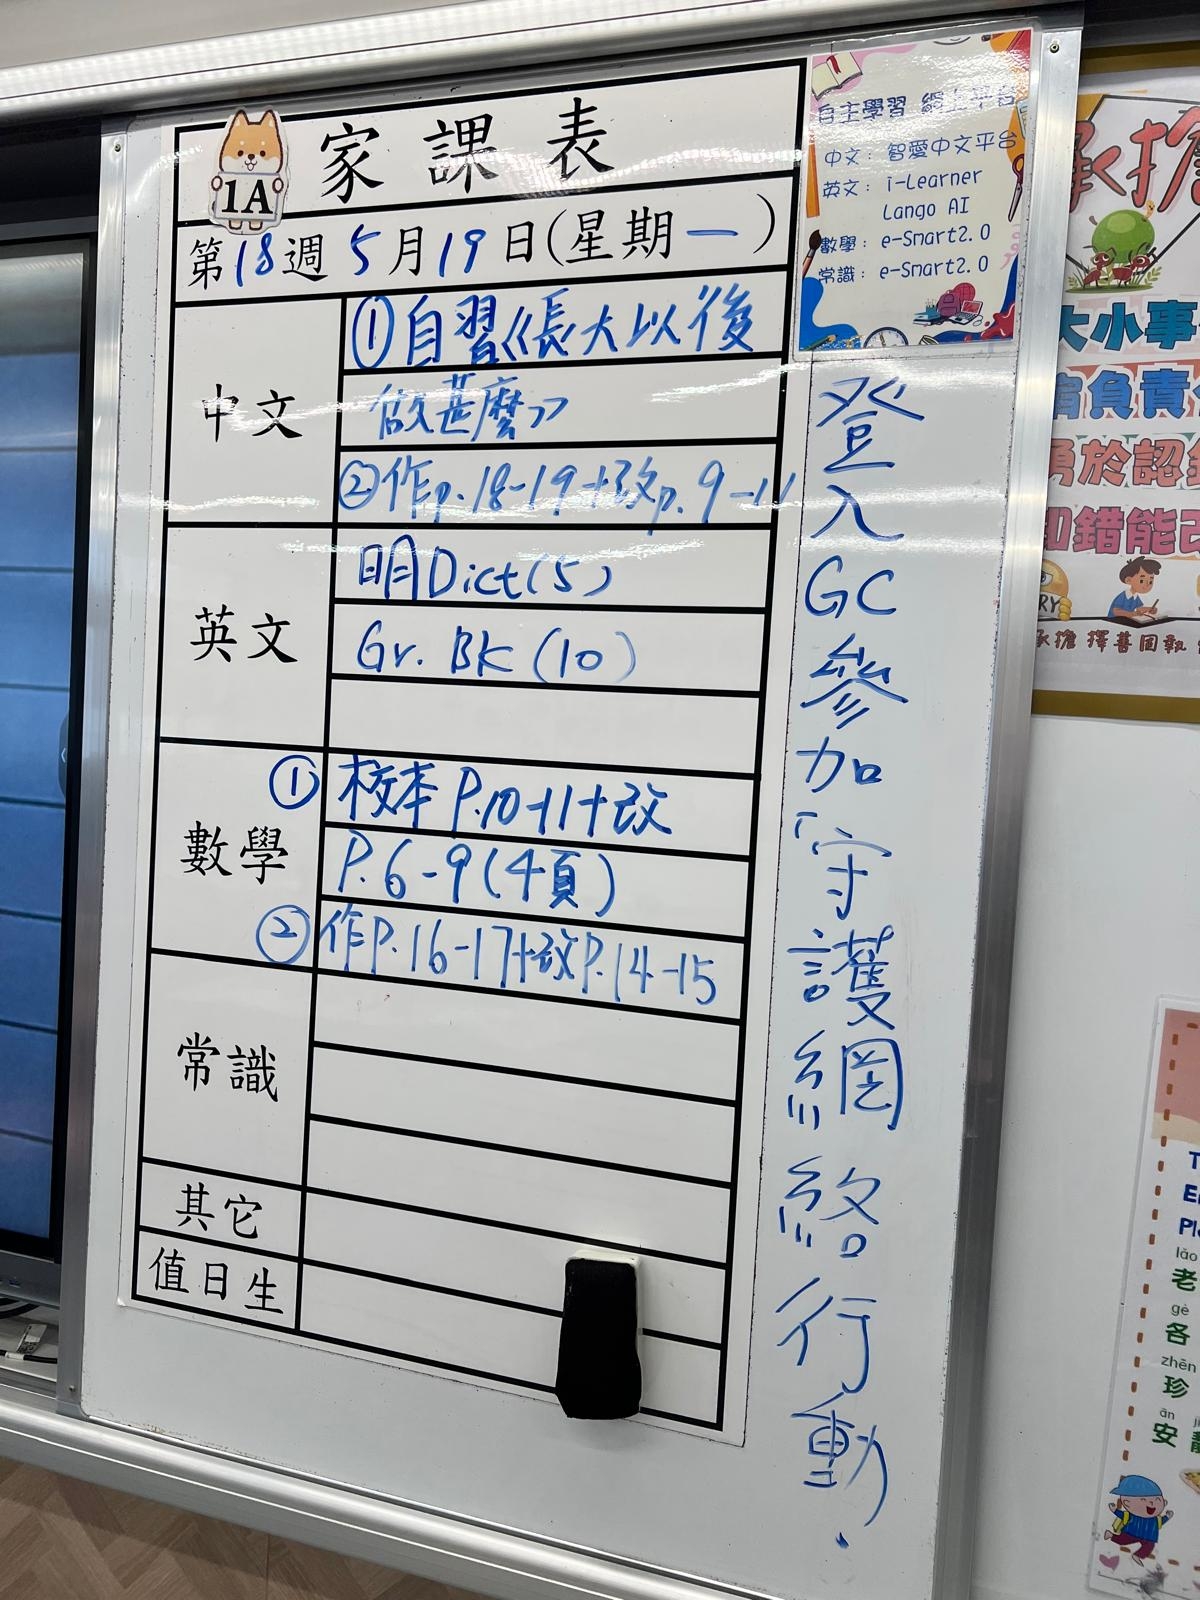 家課表
1A
第18週5月19日(星期一)
中文
①自習《長大以後
做甚麼》
②作p.18-19+改p.9-11
英文
明Dict(5)
Gr. BK (10)
數學
①校本 P.10-11+改
P.6-9(4頁)
②作P.16-17+改P.14-15
常識
其它
值日生
自主學習 網上平台
中文: 智愛中文平台
英文: i-Learner
Lango AI
數學: e-Smart2.0
常識: e-Smart2.0
登入GC參加「守護網絡行動.
承擔
大小事
負責
勇於認錯
知錯能改
承擔 擇善固執
lǎo
老
gè
各
zhēn
珍
ān
安